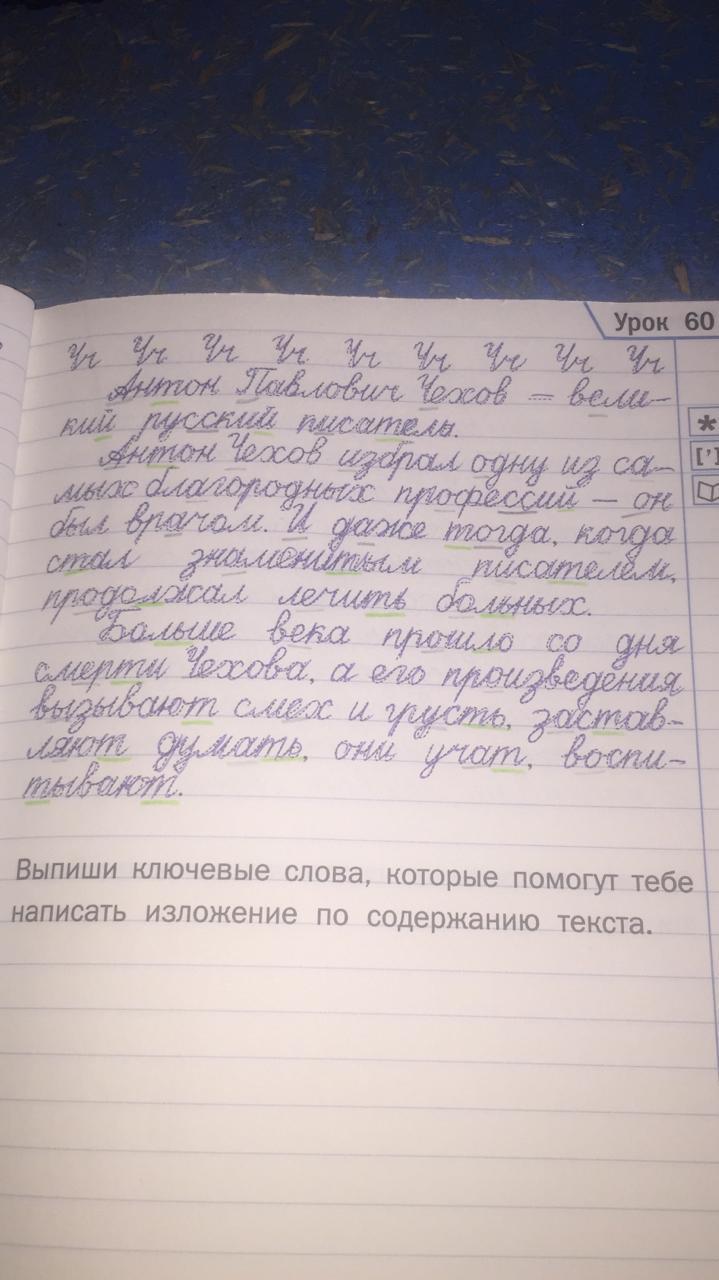 Урок 60
Чч Чч Чч Чч Чч Чч Чч Чч Чч
Антон Павлович Чехов – вели-
кий русский писатель.
Антон Чехов избрал одну из са-
мых благородных профессий – он
был врачом. И даже тогда, когда
стал знаменитым писателем,
продолжал лечить больных.
Больше века прошло со дня
смерти Чехова, а его произведения
вызывают смех и грусть, застав-
ляют думать, они учат, воспи-
тывают.
Выпиши ключевые слова, которые помогут тебе
написать изложение по содержанию текста.